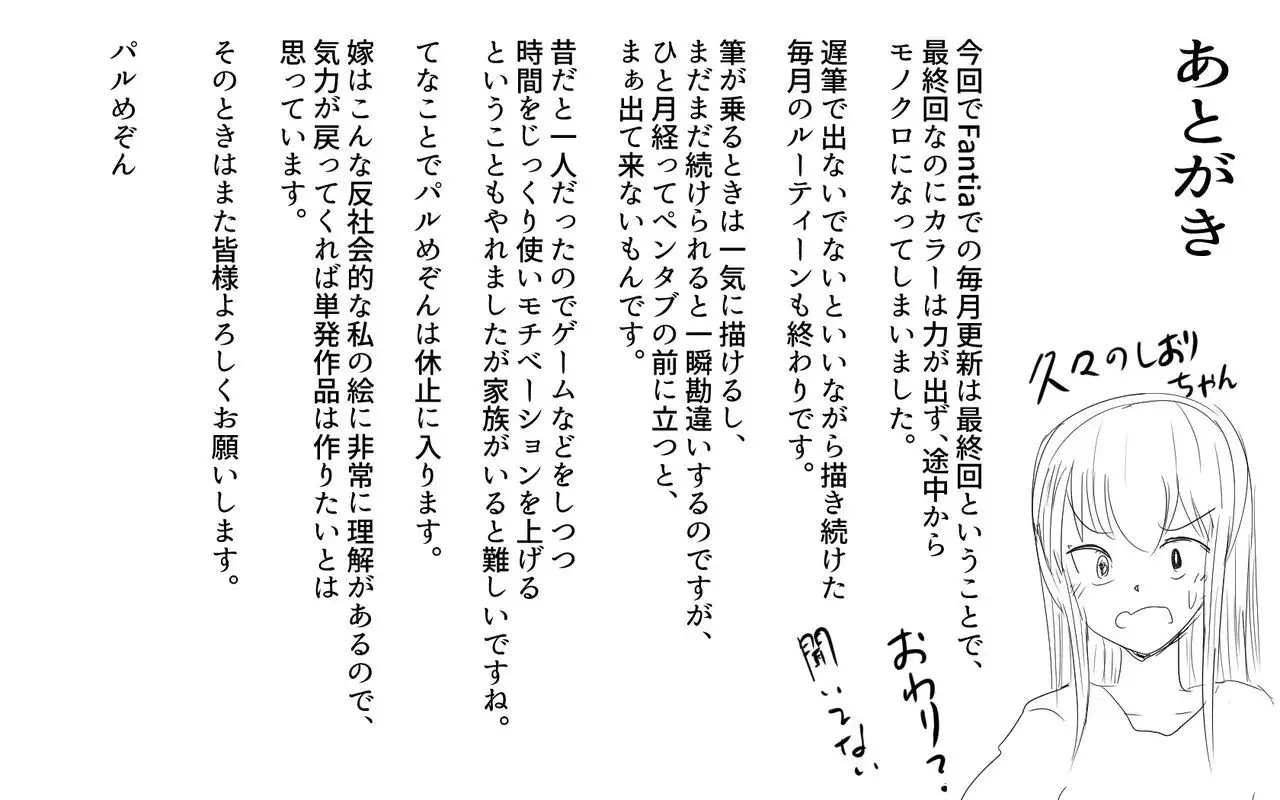 あとがき
久々のしおり
ちゃん
今回でFantiaでの毎月更新は最終回ということで、
最終回なのにカラーは力が出ず、途中から
モノクロになってしまいました。
遅筆で出ないでないといいながら描き続けた
毎月のルーティーンも終わりです。
筆が乗るときは一気に描けるし、
まだまだ続けられると一瞬勘違いするのですが、
ひと月経ってペンタブの前に立つと、
まぁ出て来ないもんです。
昔だと一人だったのでゲームなどをしつつ
時間をじっくり使いモチベーションを上げる
ということもやれましたが家族がいると難しいですね。
てなことでパルめぞんは休止に入ります。
嫁はこんな反社会的な私の絵に非常に理解があるので、
気力が戻ってくれば単発作品は作りたいとは
思っています。
そのときはまた皆様よろしくお願いします。
パルめぞん
おわり?
聞いてない